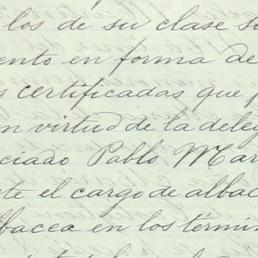 los de su clase
ento en forma de
s certificadas que
n virtud de la deleg
ciado Pablo Mar
te el cargo de albac
lbacea en los termin